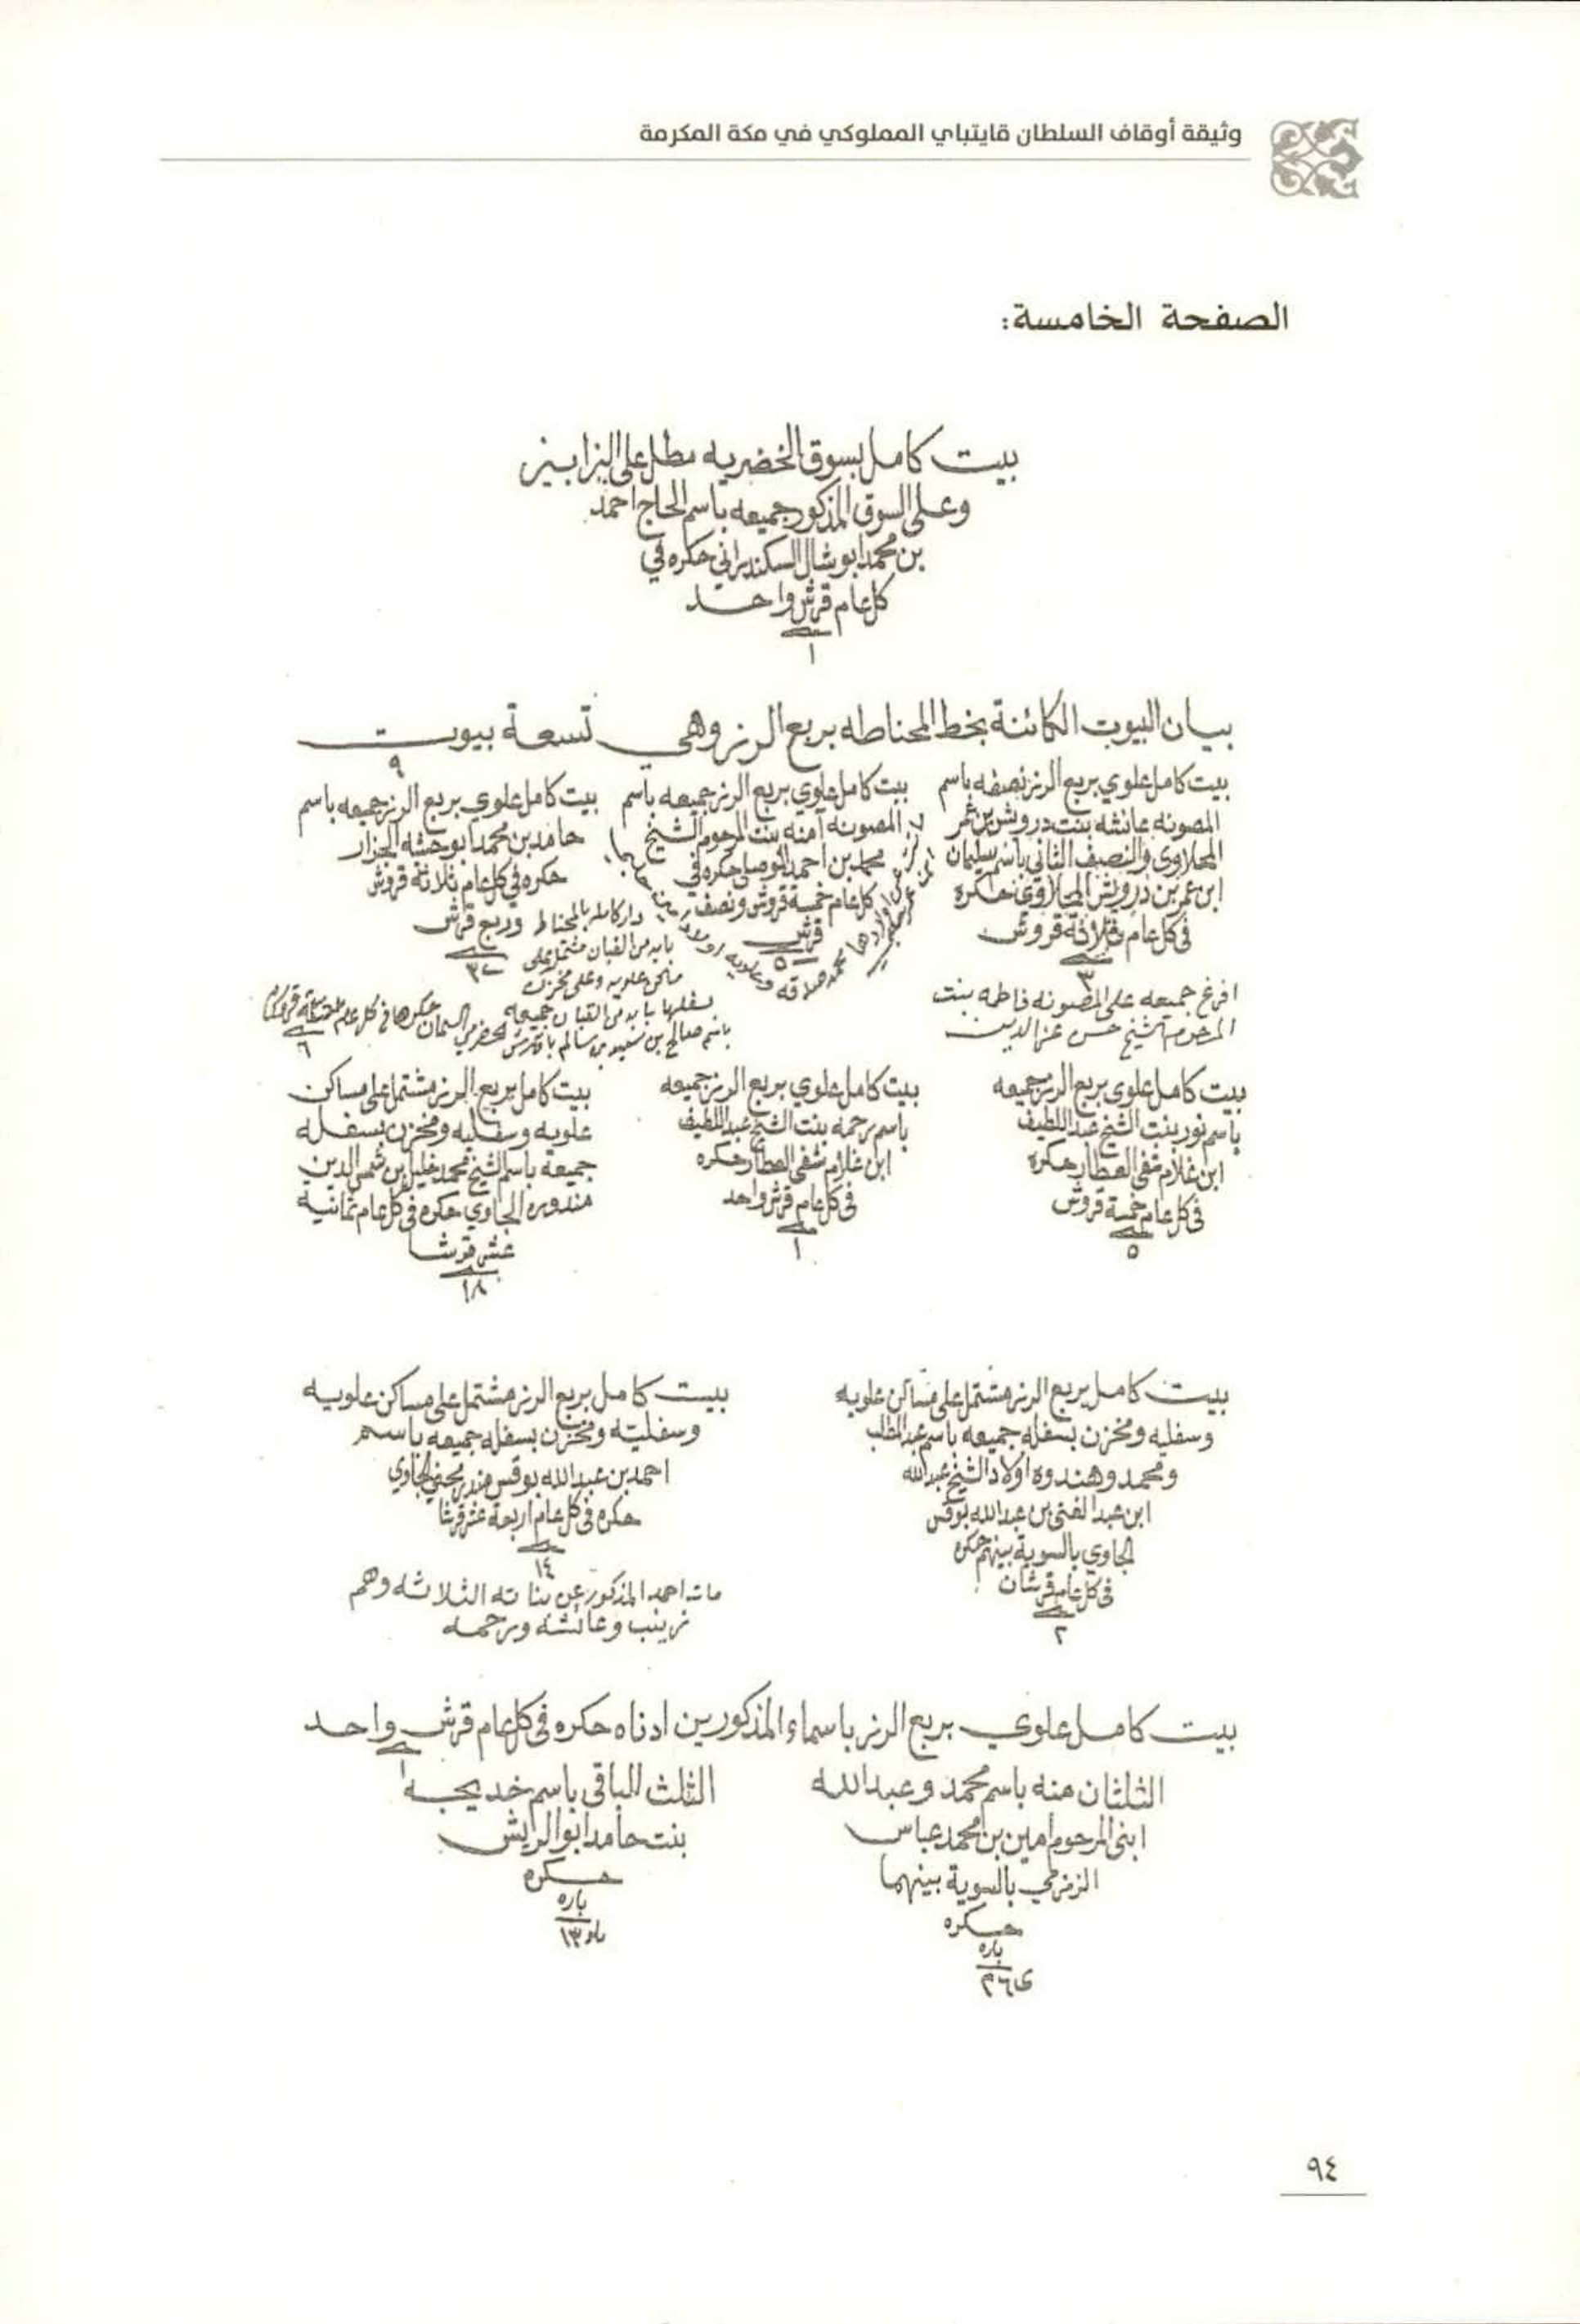 وثيقة أوقاف السلطان قايتباي المملوكي في مكة المكرمة
الصفحة الخامسة:
بيت كامل بسوق الخضريه مطل على البزابيز
وعلى السوق المذكور جميعه باسم الحاج احمد
بن محمد ابوشال السكندراني حكره في
كل عام قرش واحد
١
بيان البيوت الكائنة بخط المحناطه بربع الرز وهي تسعة بيوت
٩
بيت كامل علوي بربع الرز نصفه باسم
المصونه عائشه بنت درويش بن عمر
المحلاوي والنصف الثاني باسم سليمان
ابن عمر بن درويش المحلاوي حكره
في كل عام ثلاثة قروش
٣
افرغ جميعه على المصونه فاطمه بنت
المرحوم الشيخ حسن عز الدين
بيت كامل علوي بربع الرز جميعه باسم
المصونه آمنه بنت المرحوم الشيخ
محمد بن احمد حكره في
كل عام خمسة قروش ونصف
قرش
بيت كامل علوي بربع الرز جميعه باسم
حامد بن محمد ابوحشه الجزار
حكره في كل عام ثلاثة قروش
وربع قرش
دار كامله بالمحناط
بابه من القبان مشتمل على
علويه وعلى مخزن
بسفلها بابه من القبان جميعه
باسم صالح بن سعيد بن سالم الحضرمي السمان حكرها في كل عام
٦
بيت كامل علوي بربع الرز جميعه
باسم نور بنت الشيخ عبد اللطيف
ابن غلام شفى العطار حكره
في كل عام خمسة قروش
٥
بيت كامل علوي بربع الرز جميعه
باسم رحمه بنت الشيخ عبد اللطيف
ابن غلام شفى العطار حكره
في كل عام قرش واحد
١
بيت كامل بربع الرز مشتمل على مساكن
علويه وسفليه ومخزن بسفله
جميعه باسم الشيخ محمد خليل بن شمس الدين
مندوره الجاوي حكره في كل عام ثمانيه
عشر قرشا
١٨
بيت كامل بربع الرز مشتمل على مساكن علويه
وسفليه ومخزن بسفله جميعه باسم عبد المطلب
ومحمد وهندوه اولاد الشيخ عبد الله
ابن عبد الغني بن عبد الله بوقس
الجاوي بالسوية بينهم حكره
في كل عام قرشان
٢
بيت كامل بربع الرز مشتمل على مساكن علويه
وسفليته ومخزن بسفله جميعه باسم
احمد بن عبد الله بوقس الجاوي
حكره في كل عام اربعة عشر قرشا
١٤
مات احمد المذكور عن بناته الثلاثه وهم
زينب وعائشه ورحمه
بيت كامل علوي بربع الرز باسماء المذكورين ادناه حكره في كل عام قرش واحد
١
الثلثان منه باسم محمد وعبد الله
ابني المرحوم امين بن محمد عباس
الزمزمي بالسوية بينهما
حكره
باره
الثلث الباقي باسم خديجه
بنت حامد ابو الريش
حكره
باره
٩٤